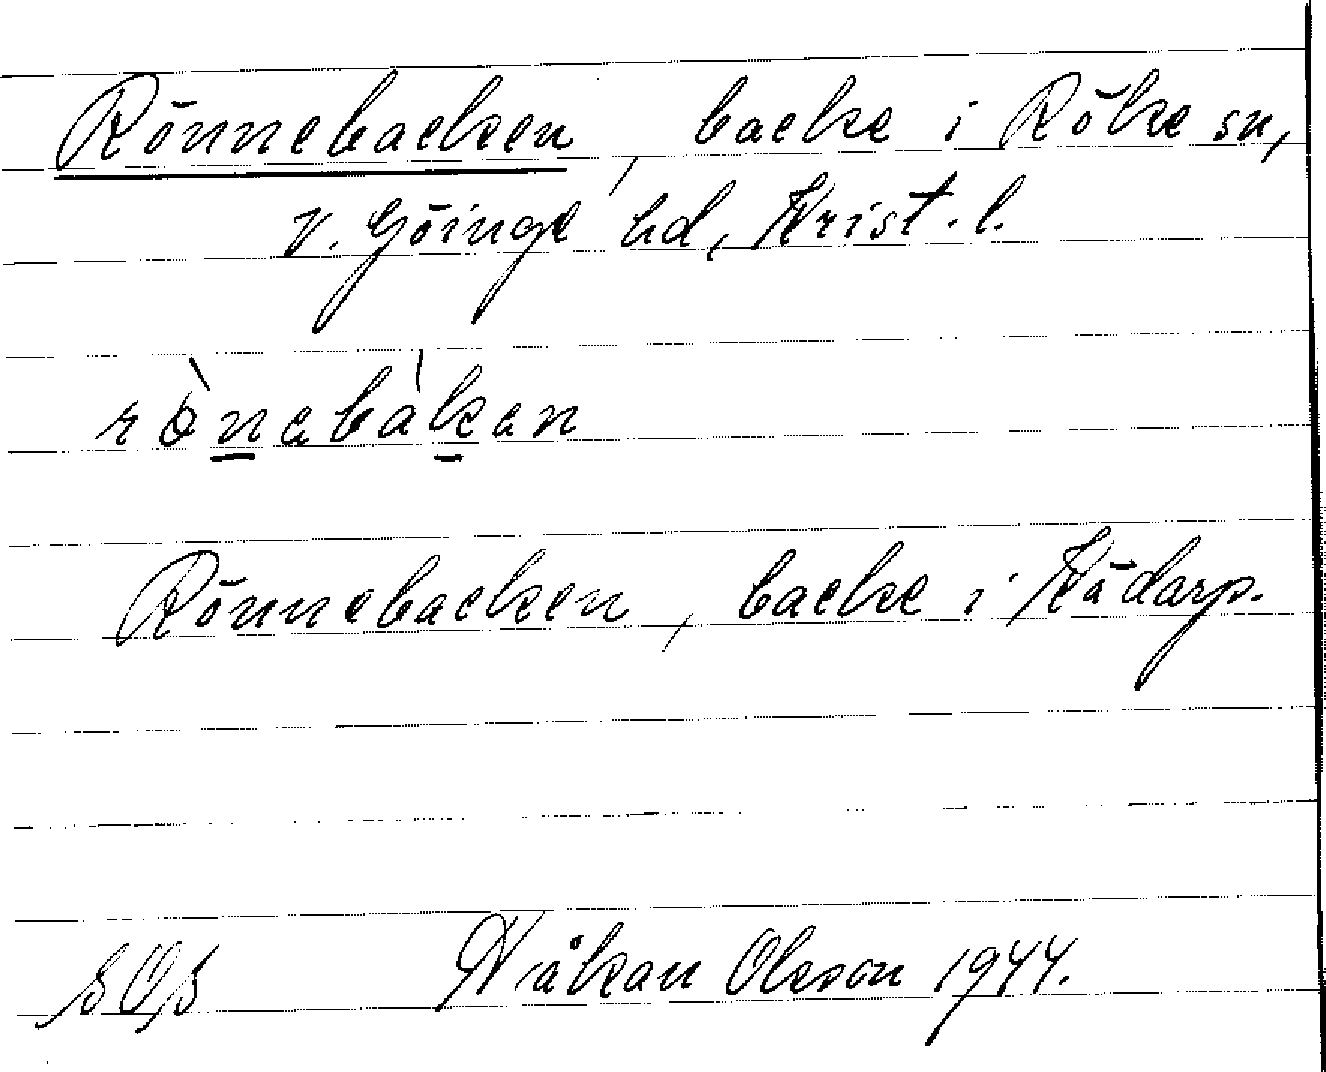 Rönnebacken, backe i Röke sn,
v. Göinge hd, Krist. l.
rònebàken
Rönnebacken, backe i Kådarp.
Håkan Olsson 1944.